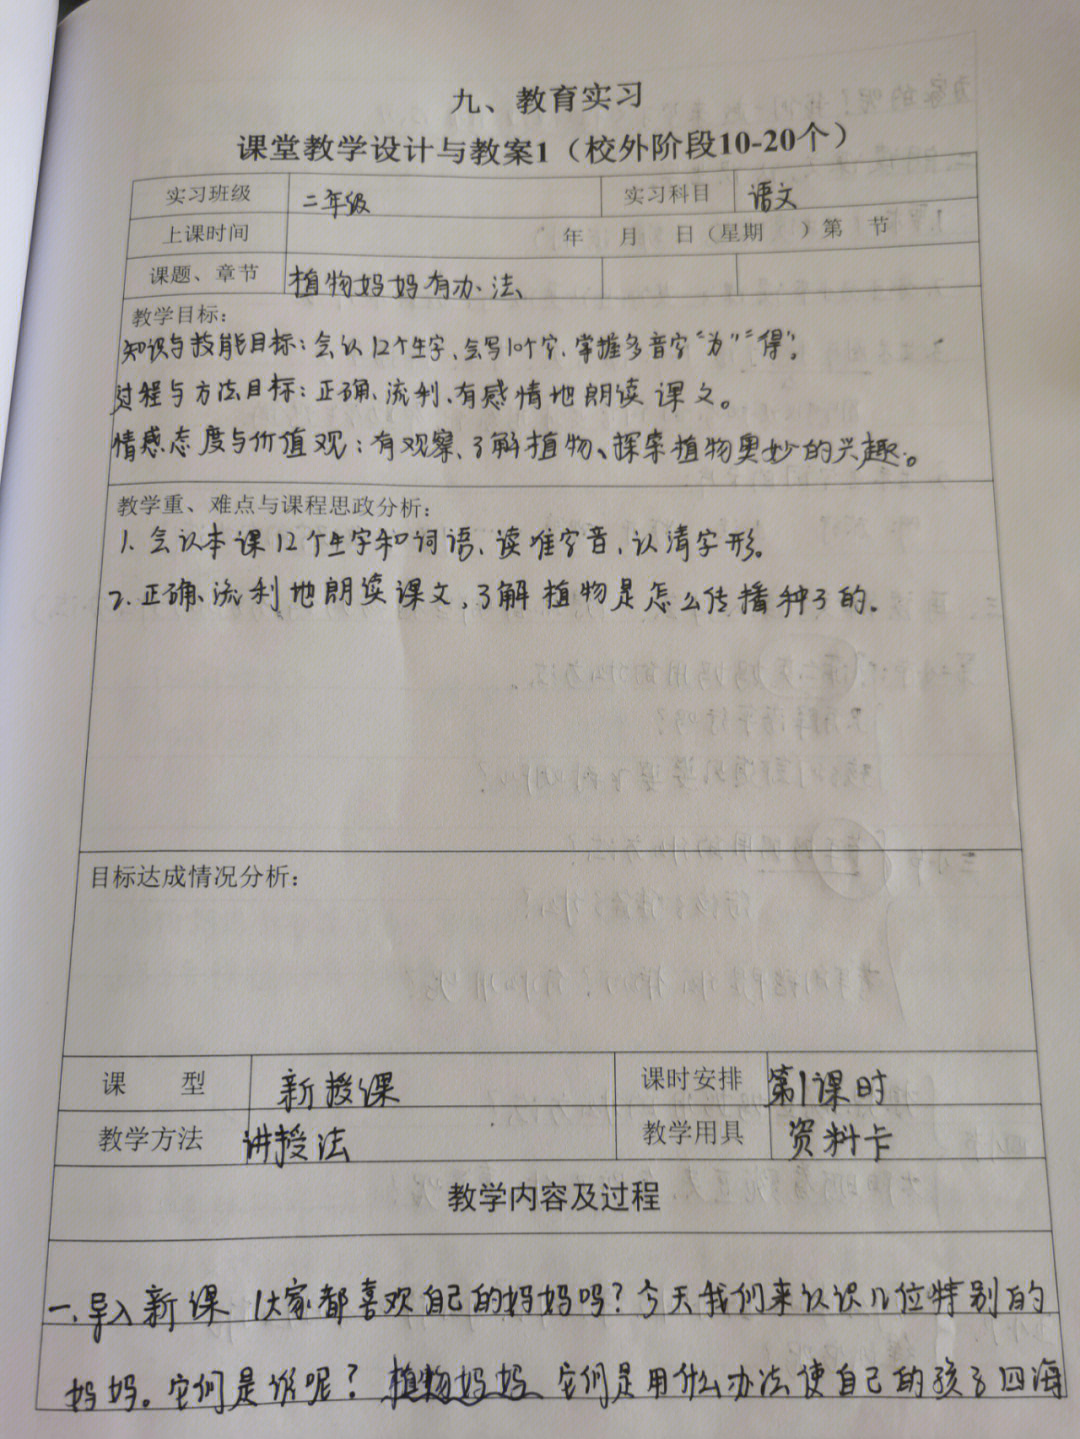 九、教育实习
课堂教学设计与教案1（校外阶段10-20个）
实习班级 二年级 实习科目 语文
上课时间 年 月 日（星期 ）第 节
课题、章节 植物妈妈有办法
教学目标：
知识与技能目标：会认12个生字、会写10个字、掌握多音字“为”“得”。
过程与方法目标：正确、流利、有感情地朗读课文。
情感态度与价值观：有观察、了解植物、探索植物奥妙的兴趣。
教学重、难点与课程思政分析：
1. 会认本课12个生字和词语、读准字音，认清字形。
2. 正确、流利地朗读课文，了解植物是怎么传播种子的。
目标达成情况分析：
课 型 新授课 课时安排 第1课时
教学方法 讲授法 教学用具 资料卡
教学内容及过程
一.导入新课 大家都喜欢自己的妈妈吗？今天我们来认识几位特别的
妈妈。它们是谁呢？植物妈妈 它们是用什么办法使自己的孩子四海